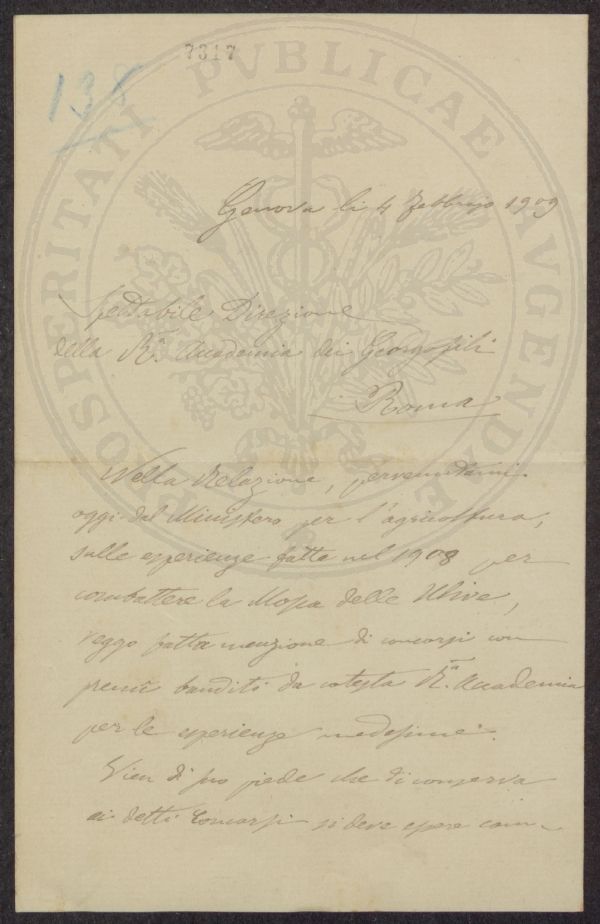 7317
138
PROSPERITATI PVBLICAE AVGENDAE
Genova li 4 Febbrajo 1909
Spettabile Direzione
della Ra. Accademia dei Georgofili
Roma
Nella Relazione, pervenutami
oggi dal Ministero per l'agricoltura,
sulle esperienze fatte nel 1908 per
combattere la Mosca delle Ulive,
veggo fatta menzione di concorsi con
premî banditi da cotesta Ra. Accademia
per le esperienze medesime.
Vien di suo piede che di conserva
ai detti Concorsi si deve essere com-